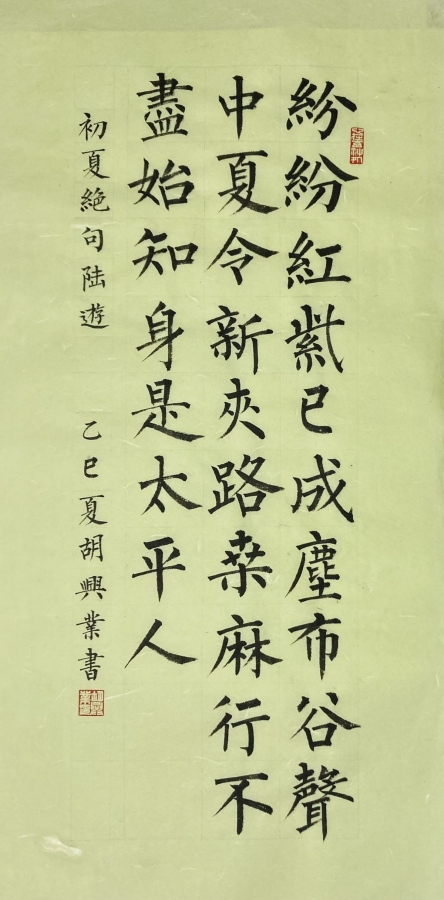 紛紛紅紫已成塵布谷聲
中夏令新夾路桒麻行不
盡始知身是太平人
初夏絶句陆遊
乙巳夏胡興業書